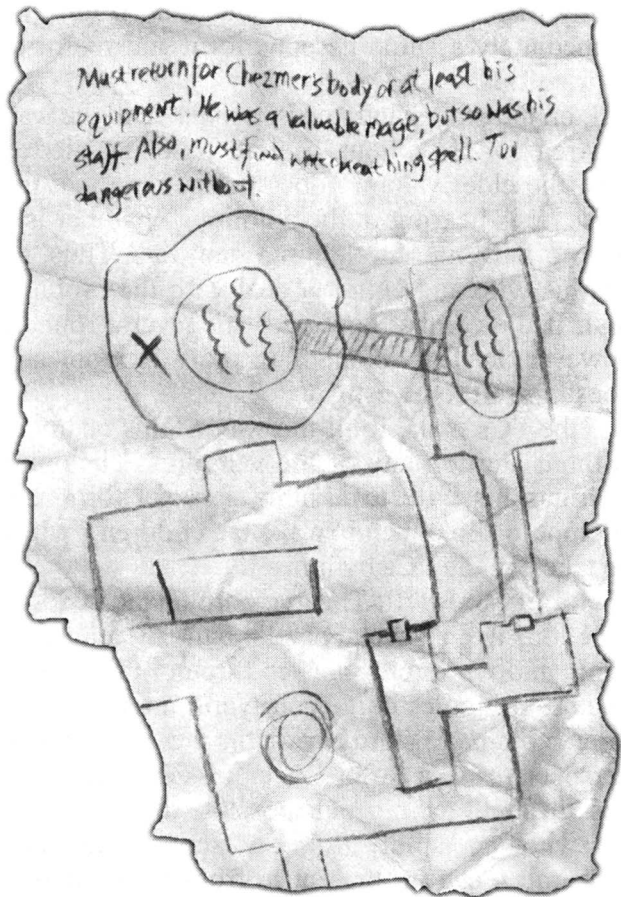 Must return for Chezmer's body or at least his
equipment! He was a valuable mage, but so was his
staff. Also, must find waterbreathing spell. Too
dangerous without.